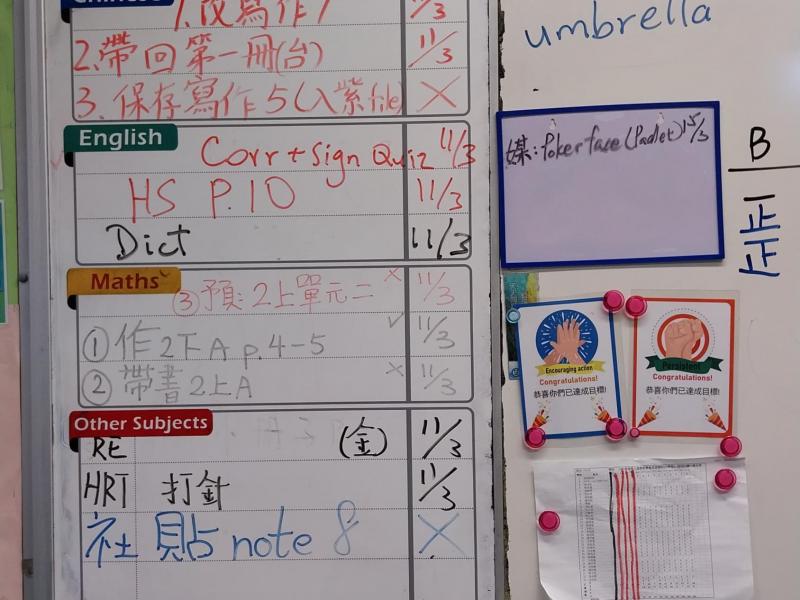 Chinese
1. 改寫作1 11/3
2. 帶回第一冊(台) 11/3
3. 保存寫作5(入紫file) X
English
Corr + Sign Quiz 11/3
HS P.10 11/3
Dict 11/3
Maths
③預:2上單元二 x 11/3
①作2下A p.4-5 ✓ 11/3
②帶書2上A x 11/3
Other Subjects
RE (金) 11/3
HRT 打針 11/3
社 貼 note 8 X
umbrella
媒: Poker face (Padlet) 15/3
B
正
正
Encouraging action
Congratulations!
恭喜你們已達成目標!
Persistent
Congratulations!
恭喜你們已達成目標!